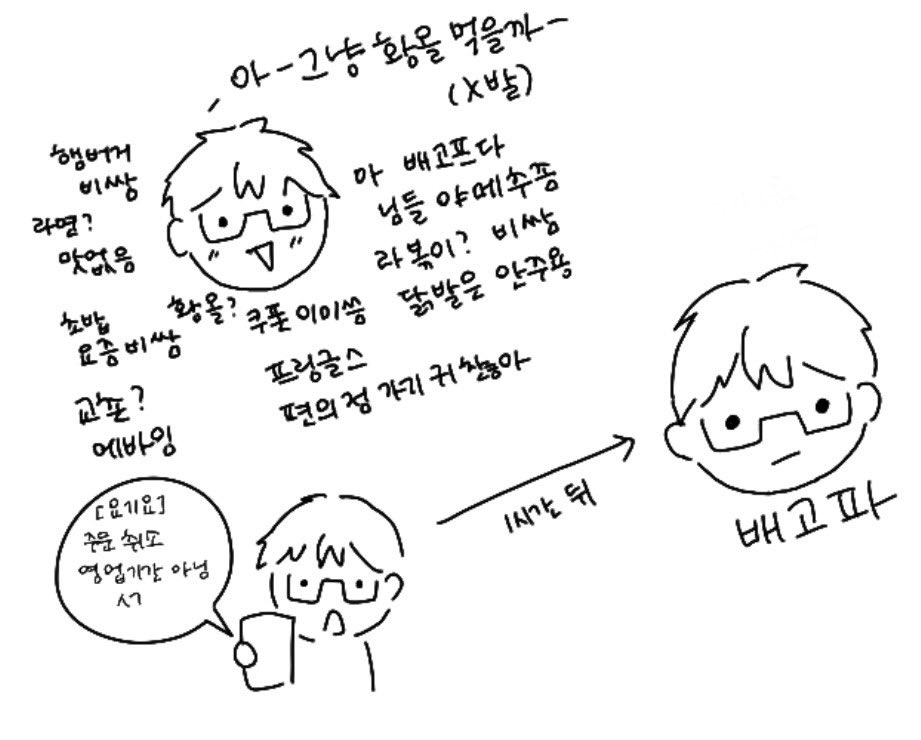 아-그냥 황올 먹을까-
(X발)
햄버거
비쌍
라멸?
맛없음
초밥
요즘 비쌈
교촌?
에바임
황올?
쿠폰 이미씀
아 배고프다
님들 야메추좀
라볶이? 비쌈
닭발은 안주용
프링글스
편의점 가기 귀찮아
[요기요]
주문 취소
영업기간 아님
ㅅㄱ
1시간 뒤
배고파